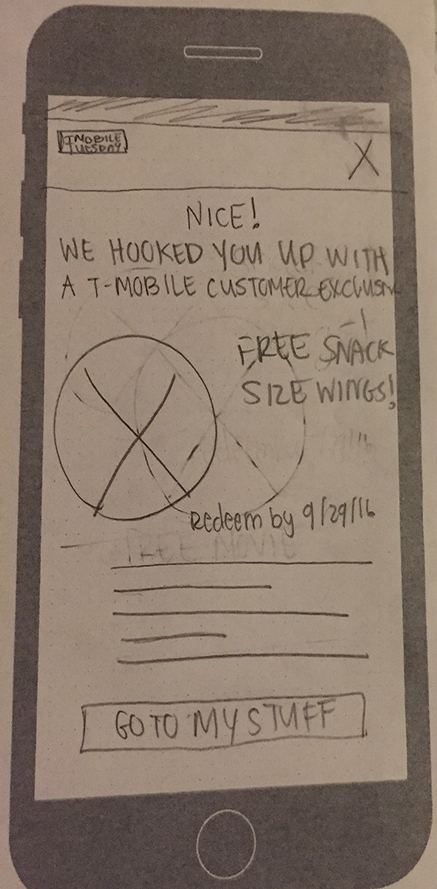 T MOBILE
TUESDAY
X
NICE!
WE HOOKED YOU UP WITH
A T-MOBILE CUSTOMER EXCLUSIV
FREE SNACK
SIZE WINGS!
Redeem by 9/29/16
FREE MOVIE
GO TO MY STUFF